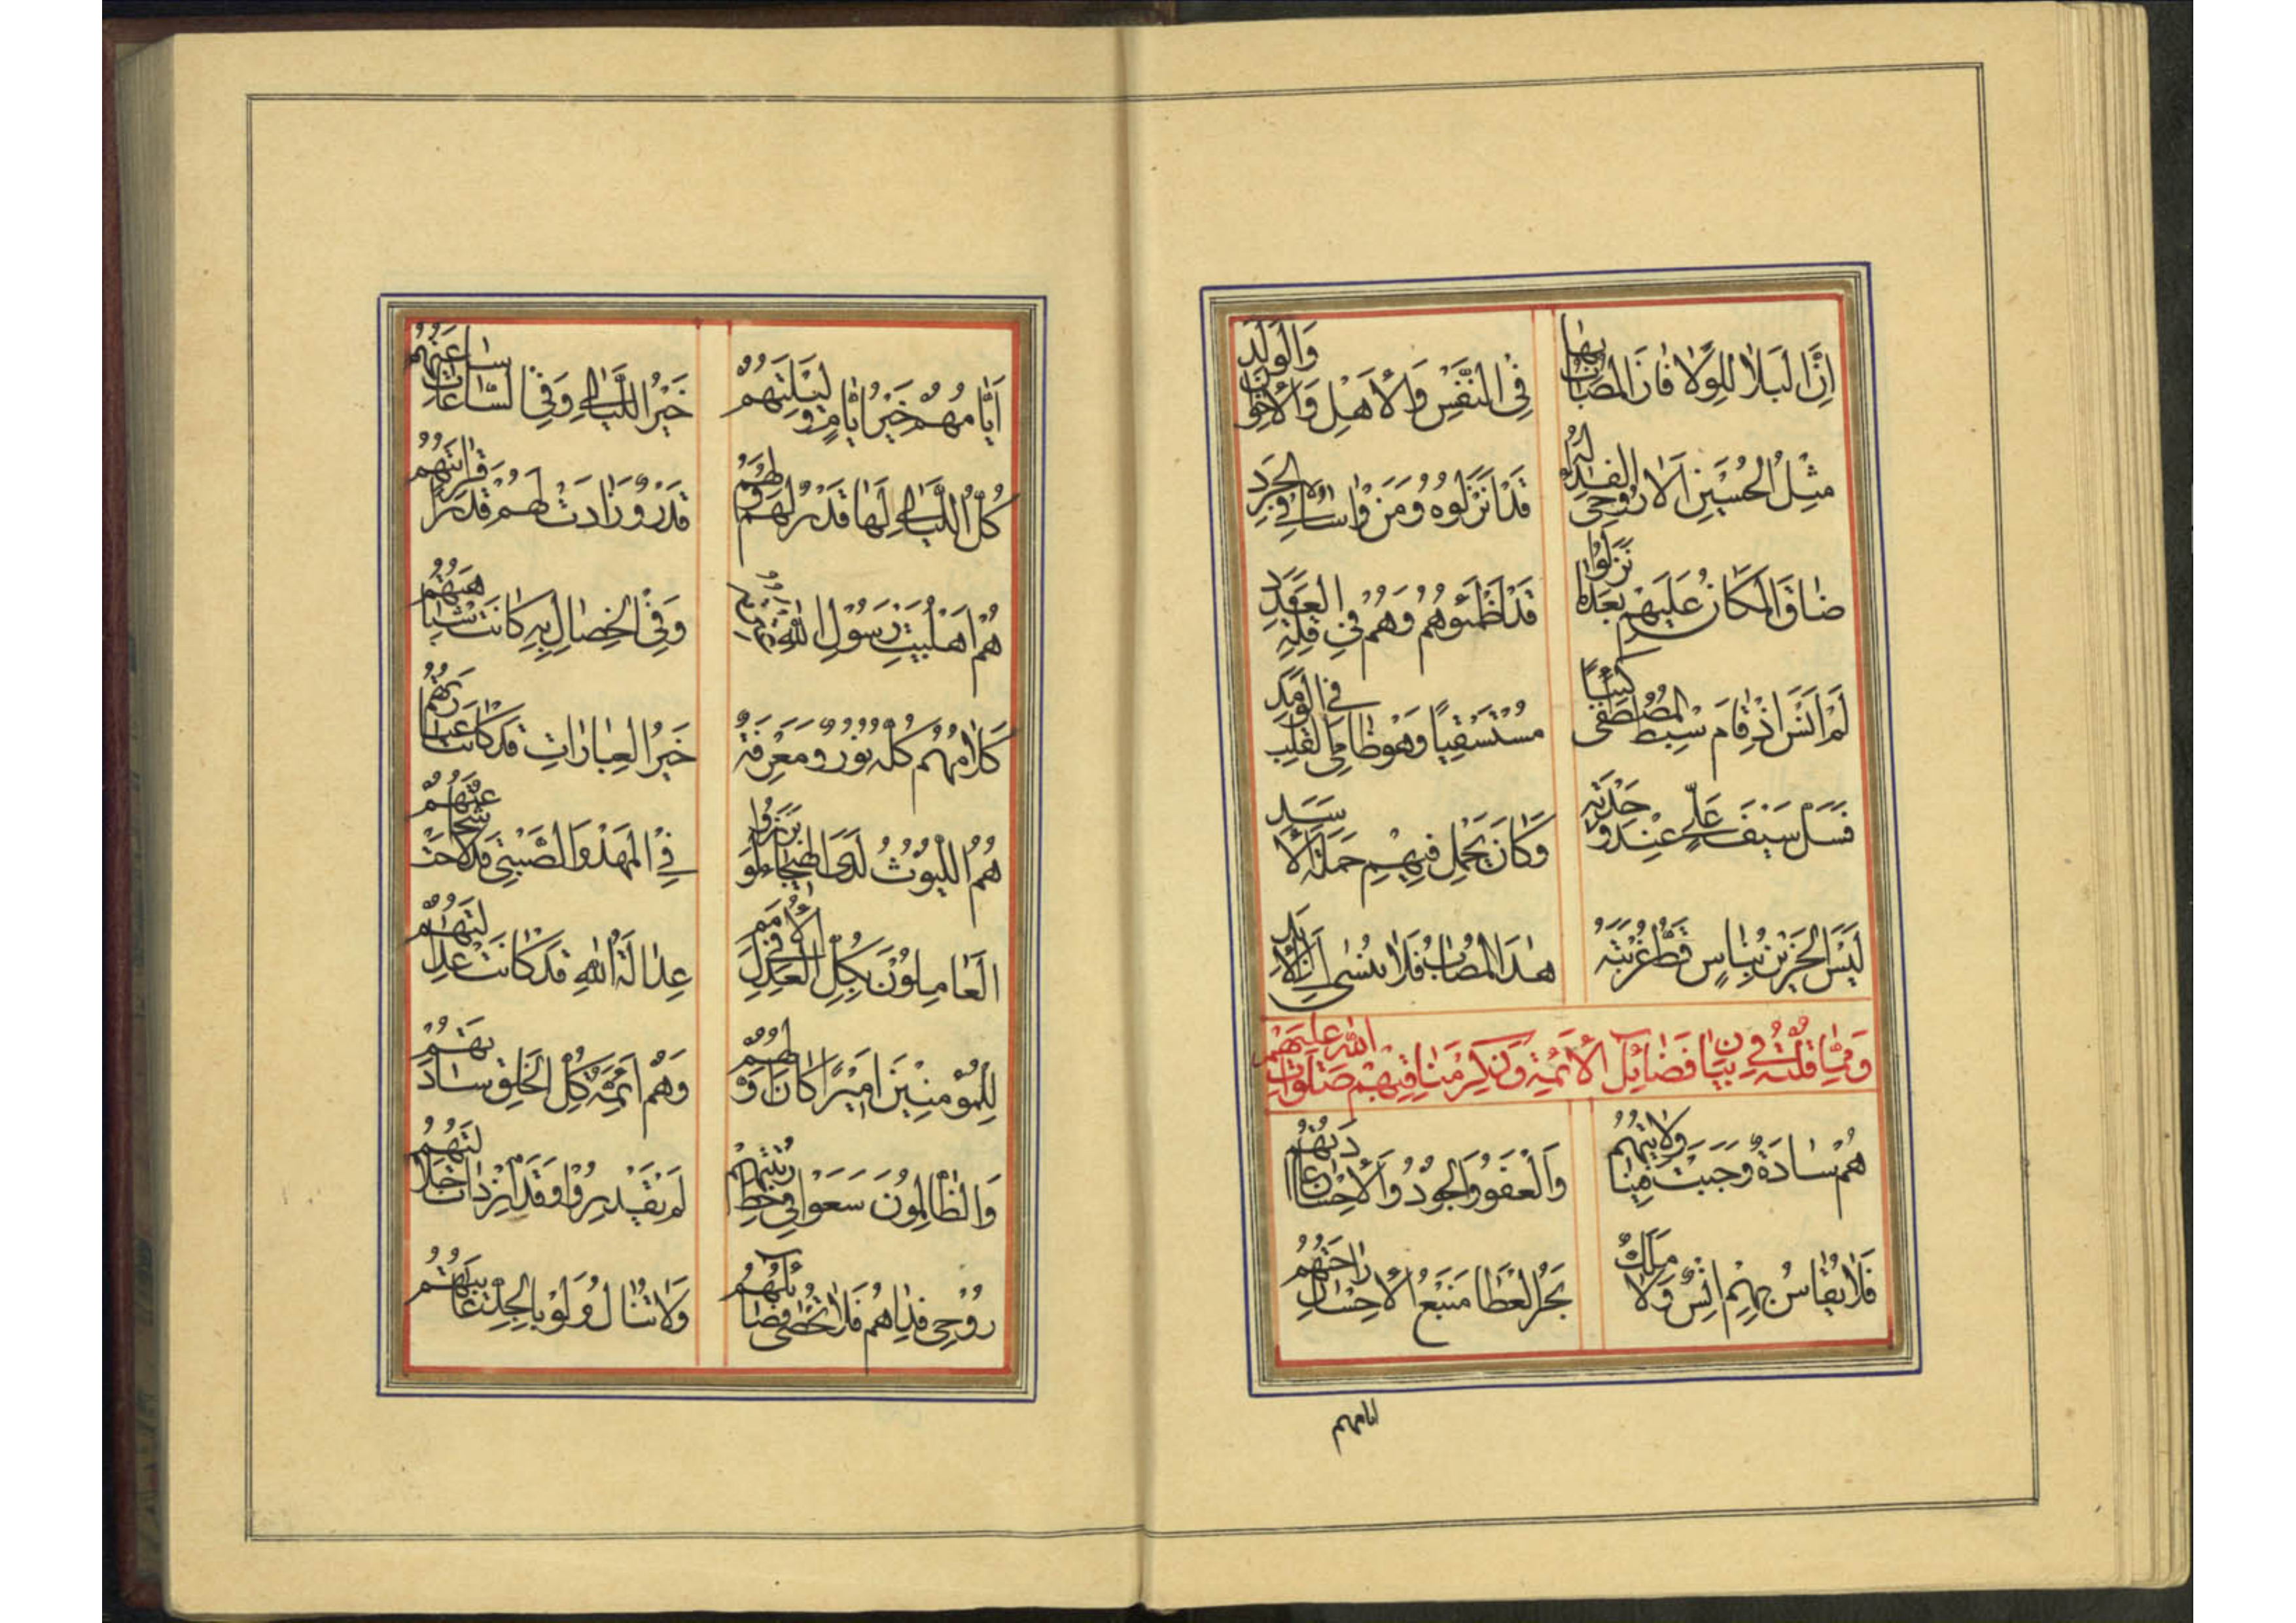 اِنَّ الْبَلَاءَ لِلْوَلَاءِ فَاِنَّ الْمُصَابَ بِهَا فِی النَّفْسِ وَالْاَهْلِ وَالْاِخْوَانِ وَالْوَلَدِ
مِثْلُ الْحُسَیْنِ اَلَا رُوحِی الْفِدَاءُ لَهُ قَدْ اَنْزَلُوهُ وَمَنْ وَاسَاهُ فِی الْجَرَدِ
ضَاقَ الْمَکَانُ عَلَیْهِمْ بَعْدَمَا نَزَلُوا قَدْ اَظْمَئُوهُمْ وَهُمْ فِی قِلَّةِ الْعَدَدِ
لَمْ اَنْسَ اِذْ قَامَ سِبْطُ الْمُصْطَفَی کَئِیبًا مُسْتَسْقِیًا وَهُوَ ظَامِی الْقَلْبِ فِی الْوَمَدِ
فَسَلَّ سَیْفَ عَلِیٍّ عِنْدَ وَحْدَتِهِ وَکَانَ یَحْمِلُ فِیهِمْ حَمْلَةَ الْاَسَدِ
لَیْسَ الْحَزِینُ بِنَاسٍ قَطُّ غُرْبَتَهُ هٰذَا الْمُصَابُ فَلَا یُنْسٰی اِلَی الْاَبَدِ
وَمِمَّا قُلْتُهُ فِی بَیَانِ فَضَائِلِ الْاَئِمَّةِ وَذِکْرِ مَنَاقِبِهِمْ صَلَوَاتُ اللّٰهِ عَلَیْهِمْ
هُمْ سَادَةٌ وَجَبَتْ مِنَّا وَلَایَتُهُمْ وَالْعَفْوُ وَالْجُودُ وَالْاِحْسَانُ عَادَتُهُمْ
فَلَا یُقَاسُ بِهِمْ اِنْسٌ وَلَا مَلَکٌ بَحْرُ الْعَطَا مَنْبَعُ الْاِحْسَانِ رَاحَتُهُمْ
ایامهم
اَیَّامُهُمْ خَیْرُ اَیَّامٍ وَلَیْلَتُهُمْ خَیْرُ اللَّیَالِی وَفِی السَّاعَاتِ سَاعَتُهُمْ
کُلُّ اللَّیَالِی لَهَا قَدْرٌ لَهُمْ وَلَهُمْ قَدْرٌ وَزَادَتْ لَهُمْ قَدْرًا قَرَابَتُهُمْ
هُمْ اَهْلُ بَیْتِ رَسُولِ اللّٰهِ وَفِی الْخِصَالِ بِهِ کَانَتْ شَبَاهَتُهُمْ
کَلَامُهُمْ کُلُّهُ نُورٌ وَمَعْرِفَةٌ خَیْرُ الْعِبَارَاتِ قَدْ کَانَتْ عِبَارَتُهُمْ
هُمُ اللُّیُوثُ لَدَی الْهَیْجَاءِ لَوْ بَرَزُوا فِی الْمَهْدِ وَالصَّبِیِّ قَدْ لَاحَتْ شَجَاعَتُهُمْ
الْعَامِلُونَ بِکُلِّ الْعَدْلِ فِی الْاُمَمِ عِدَالَةُ اللّٰهِ قَدْ کَانَتْ عِدَالَتُهُمْ
لِلْمُؤْمِنِینَ اَمِیرًا کَانَ وَالِدُهُمْ وَهُمْ اَئِمَّةُ کُلِّ الْخَلْقِ سَادَتُهُمْ
وَالظَّالِمُونَ سَعَوْا فِی حَطِّ رُتْبَتِهِمْ لَمْ یَقْدِرُوا وَقَدِ ازْدَادَتْ جَلَالَتُهُمْ
رُوحِی فِدَاهُمْ فَلَا تُحْصٰی فَضَائِلُهُمْ وَلَا تُنَالُ وَلَوْ بِالْجِدِّ غَایَتُهُمْ